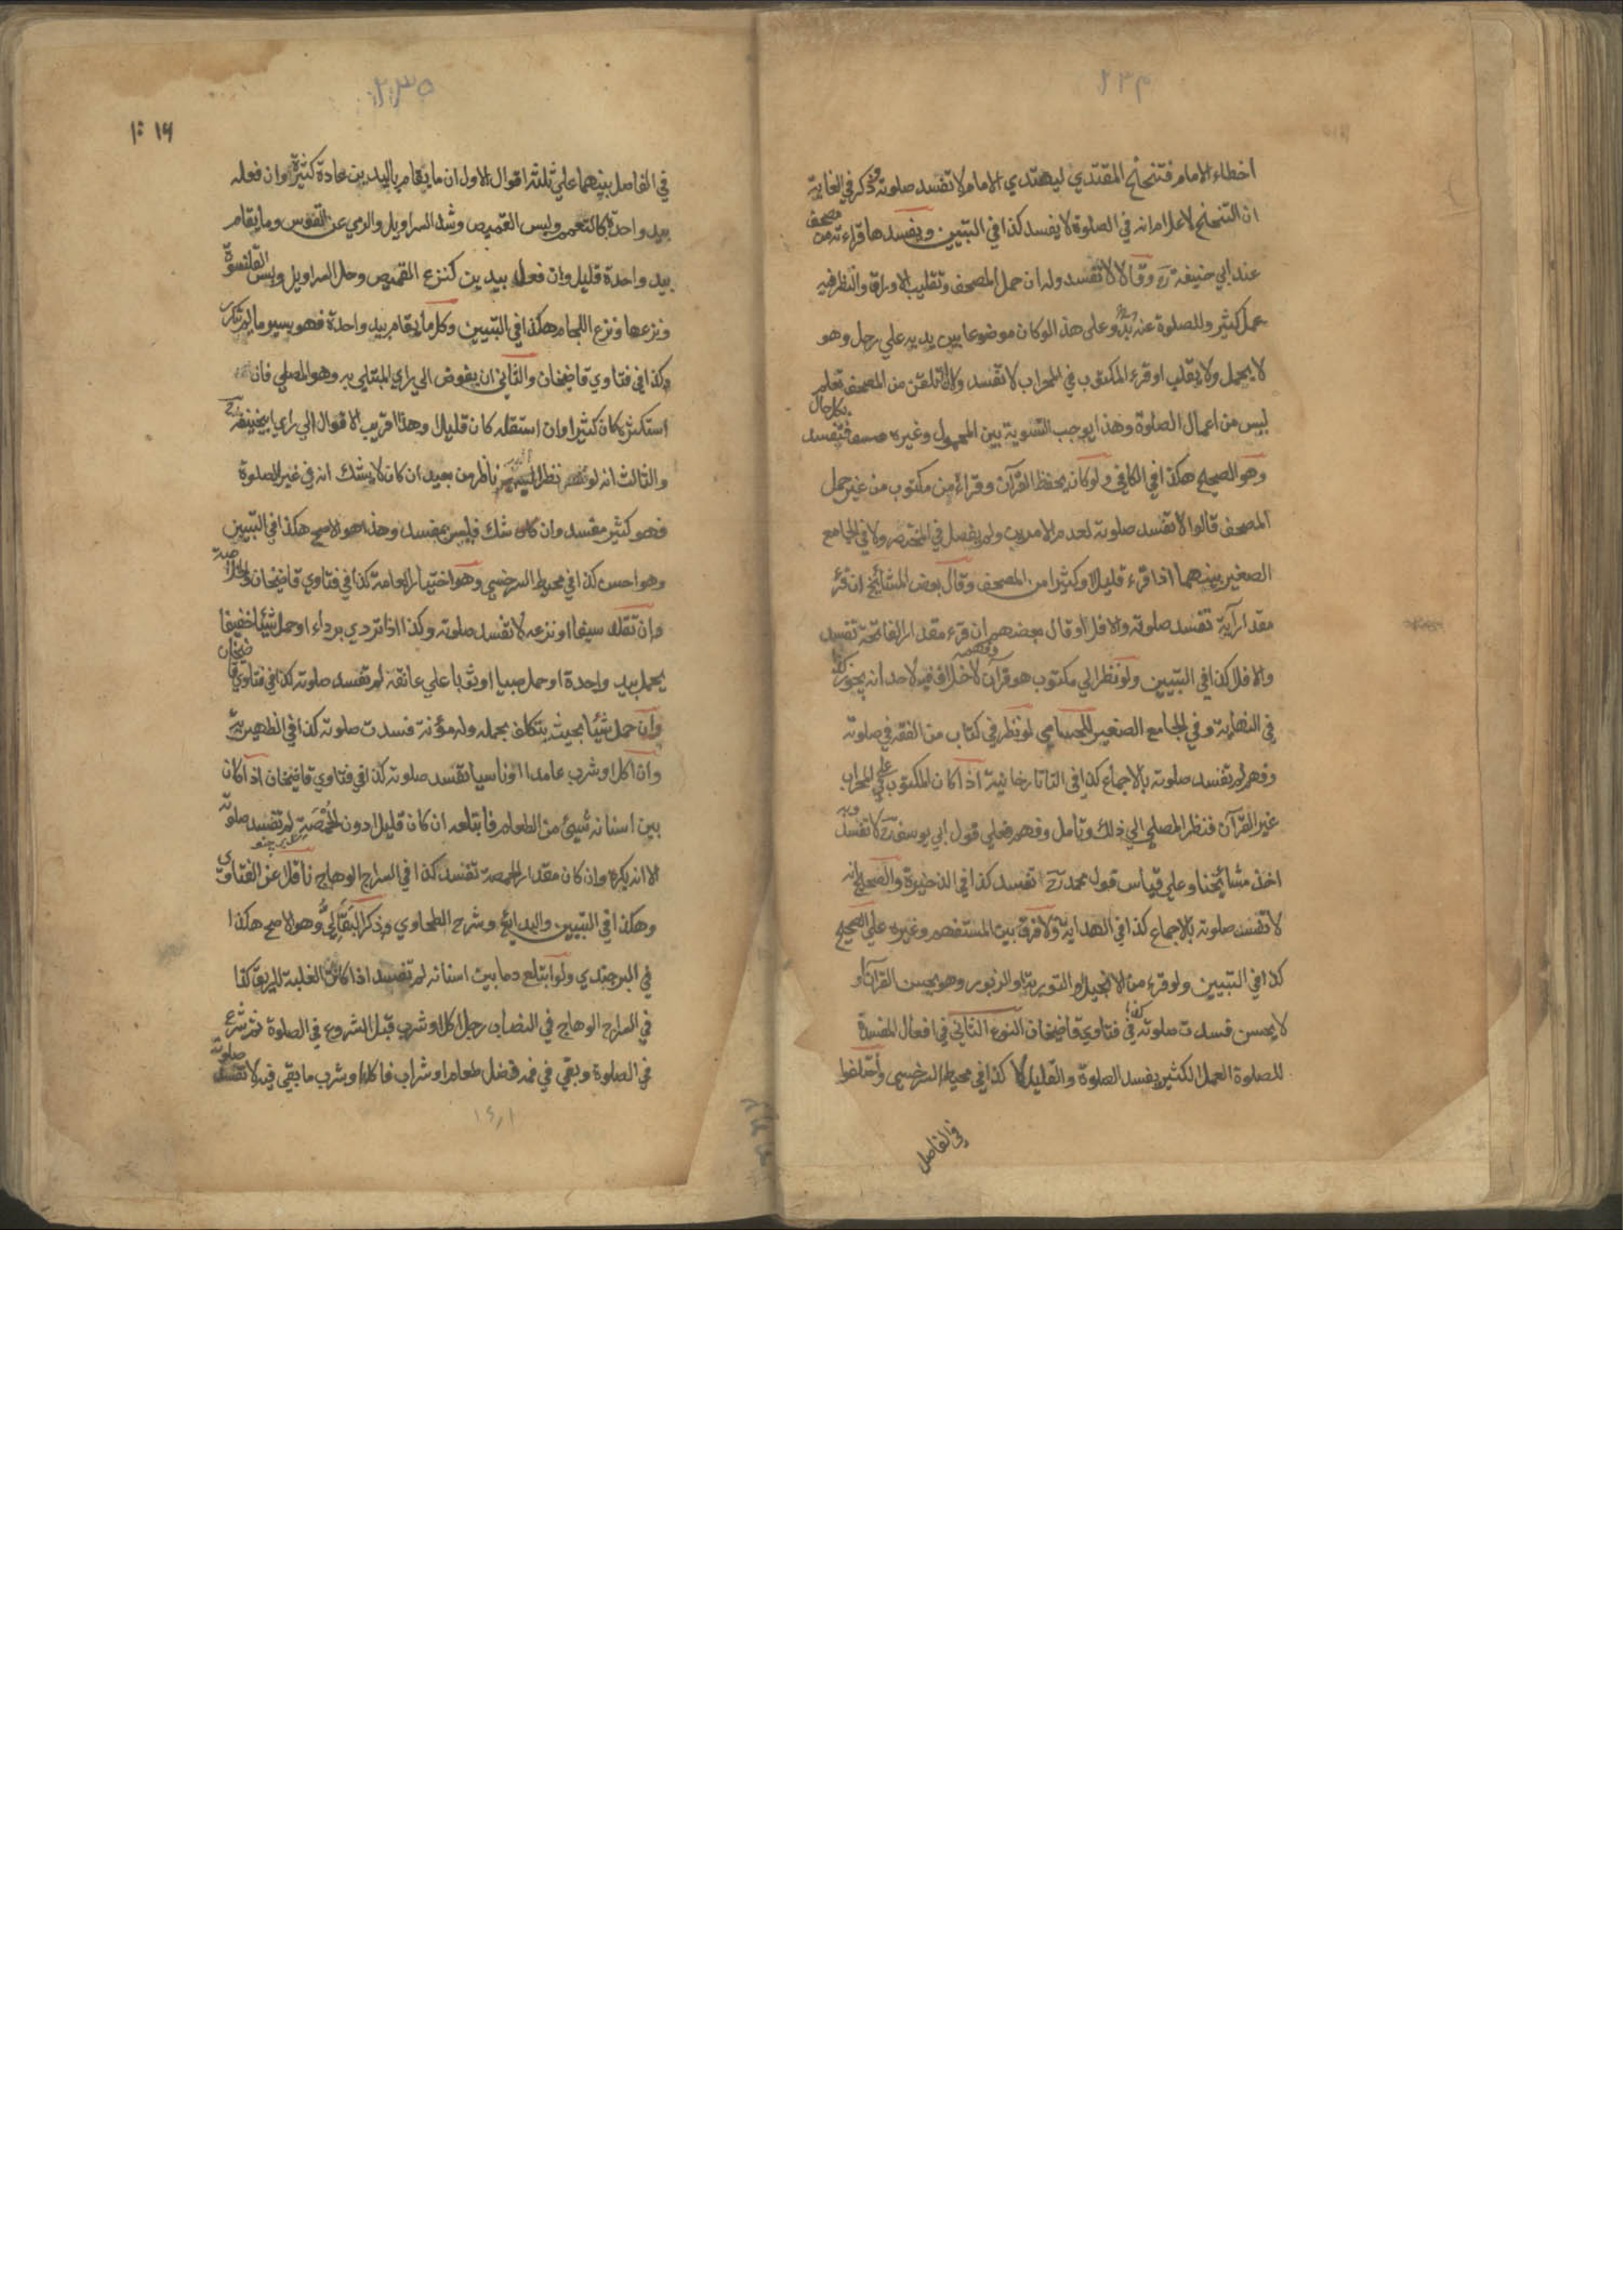 ٢٣٤
اخطاء الامام فتنحنح المقتدي ليهتدي الامام لا تفسد صلوته وذكر في الغاية
ان التنحنح لاعلام انه في الصلوة لا يفسد كذا في التبيين ويفسدها قراءته من مصحف
عند ابي حنيفة رح وقالا لا تفسد وله ان حمل المصحف وتقليب الاوراق والنظر فيه
عمل كثير وللصلوة عنه بد وعلى هذا لو كان موضوعا بين يديه علي رحل وهو
لا يحمل ولا يقلب او قرء المكتوب في المحراب لا تفسد ولان التلقن من المصحف تعلم
ليس من اعمال الصلوة وهذا يوجب التسوية بين المحمول وغيره فتفسد بكل حال
وهو الصحيح هكذا في الكافي ولو كان يحفظ القرآن وقراء من مكتوب من غير حمل
المصحف قالوا لا تفسد صلوته لعدم الامرين ولم يفصل في المختصر ولا في الجامع
الصغير بينهما اذا قرء قليلا او كثيرا من المصحف وقال بعض المشائخ ان قرء
مقدار آية تفسد صلوته والا فلا وقال بعضهم ان قرء مقدار الفاتحة تفسد
والا فلا كذا في التبيين ولو نظر الي مكتوب هو قرآن وفهمه لا خلاف فيه لاحد انه يجوز كذا
في النهاية وفي الجامع الصغير الحسامي لو نظر في كتاب من الفقه في صلوته
وفهم لم تفسد صلوته بالاجماع كذا في التاتارخانية اذا كان المكتوب علي المحراب
غير القرآن فنظر المصلي الي ذلك وتامل وفهم فعلي قول ابي يوسف رح لا تفسد وبه
اخذ مشائخنا وعلي قياس قول محمد رح تفسد كذا في الذخيرة والصحيح انه
لا تفسد صلوته بالاجماع كذا في الهداية ولا فرق بين المستفهم وغيره علي الصحيح
كذا في التبيين ولو قرء من الانجيل او التورية او الزبور وهو يحسن القرآن او
لا يحسن فسدت صلوته كذا في فتاوي قاضيخان النوع الثاني في افعال المفسدة
للصلوة العمل الكثير يفسد الصلوة والقليل لا كذا في محيط السرخسي واختلفوا
في الفاصل
٢٣٥
١٦
في الفاصل بينهما علي ثلثة اقوال الاول ان ما يقام باليدين عادة كثير وان فعله
بيد واحدة كالتعمم ولبس القميص وشد السراويل والرمي عن القوس وما يقام
بيد واحدة قليل وان فعل بيدين كنزع القميص وحل السراويل ولبس القلنسوة
ونزعها ونزع اللجام هكذا في التبيين وكل ما يقام بيد واحدة فهو يسير ما لم يتكرر
كذا في فتاوي قاضيخان والثاني ان يفوض الي راي المبتلي به وهو المصلي فان
استكثره كان كثيرا وان استقله كان قليلا وهذا اقرب الاقوال الي راي ابي حنيفة رح
والثالث انه لو نظر اليه ناظر من بعيد ان كان لا يشك انه في غير الصلوة
فهو كثير مفسد وان كان شك فليس بمفسد وهذا هو الاصح هكذا في التبيين
وهو احسن كذا في محيط السرخسي وهو اختيار العامة كذا في فتاوي قاضيخان والخلاصة
وان تقلد سيفا او نزعه لا تفسد صلوته وكذا اذا تردي برداء او حمل شيئا خفيفا
يحمل بيد واحدة او حمل صبيا او ثوبا علي عاتقه لم تفسد صلوته كذا في فتاوي قاضيخان
وان حمل شيئا بحيث يتكلف بحمله وله مؤنة فسدت صلوته كذا في الظهيرية
وان اكل او شرب عامدا او ناسيا تفسد صلوته كذا في فتاوي قاضيخان اذا كان
بين اسنانه شيئ من الطعام فابتلعه ان كان قليلا دون الحمصة لم تفسد صلوته
الا انه يكره وان كان مقدار الحمصة تفسد كذا في السراج الوهاج ناقلا عن الفتاوي
وهكذا في التبيين والبدايع وشرح الطحاوي وذكر البقالي وهو الاصح هكذا
في البرجندي ولو ابتلع دما بين اسنانه لم تفسد اذا كانت الغلبة للريق كذا
في السراج الوهاج في النصاب رجل اكل او شرب قبل الشروع في الصلوة ثم شرع
في الصلوة وبقي في فمه فضل طعام او شراب فاكل او شرب ما بقي فيه لا تفسد صلوته